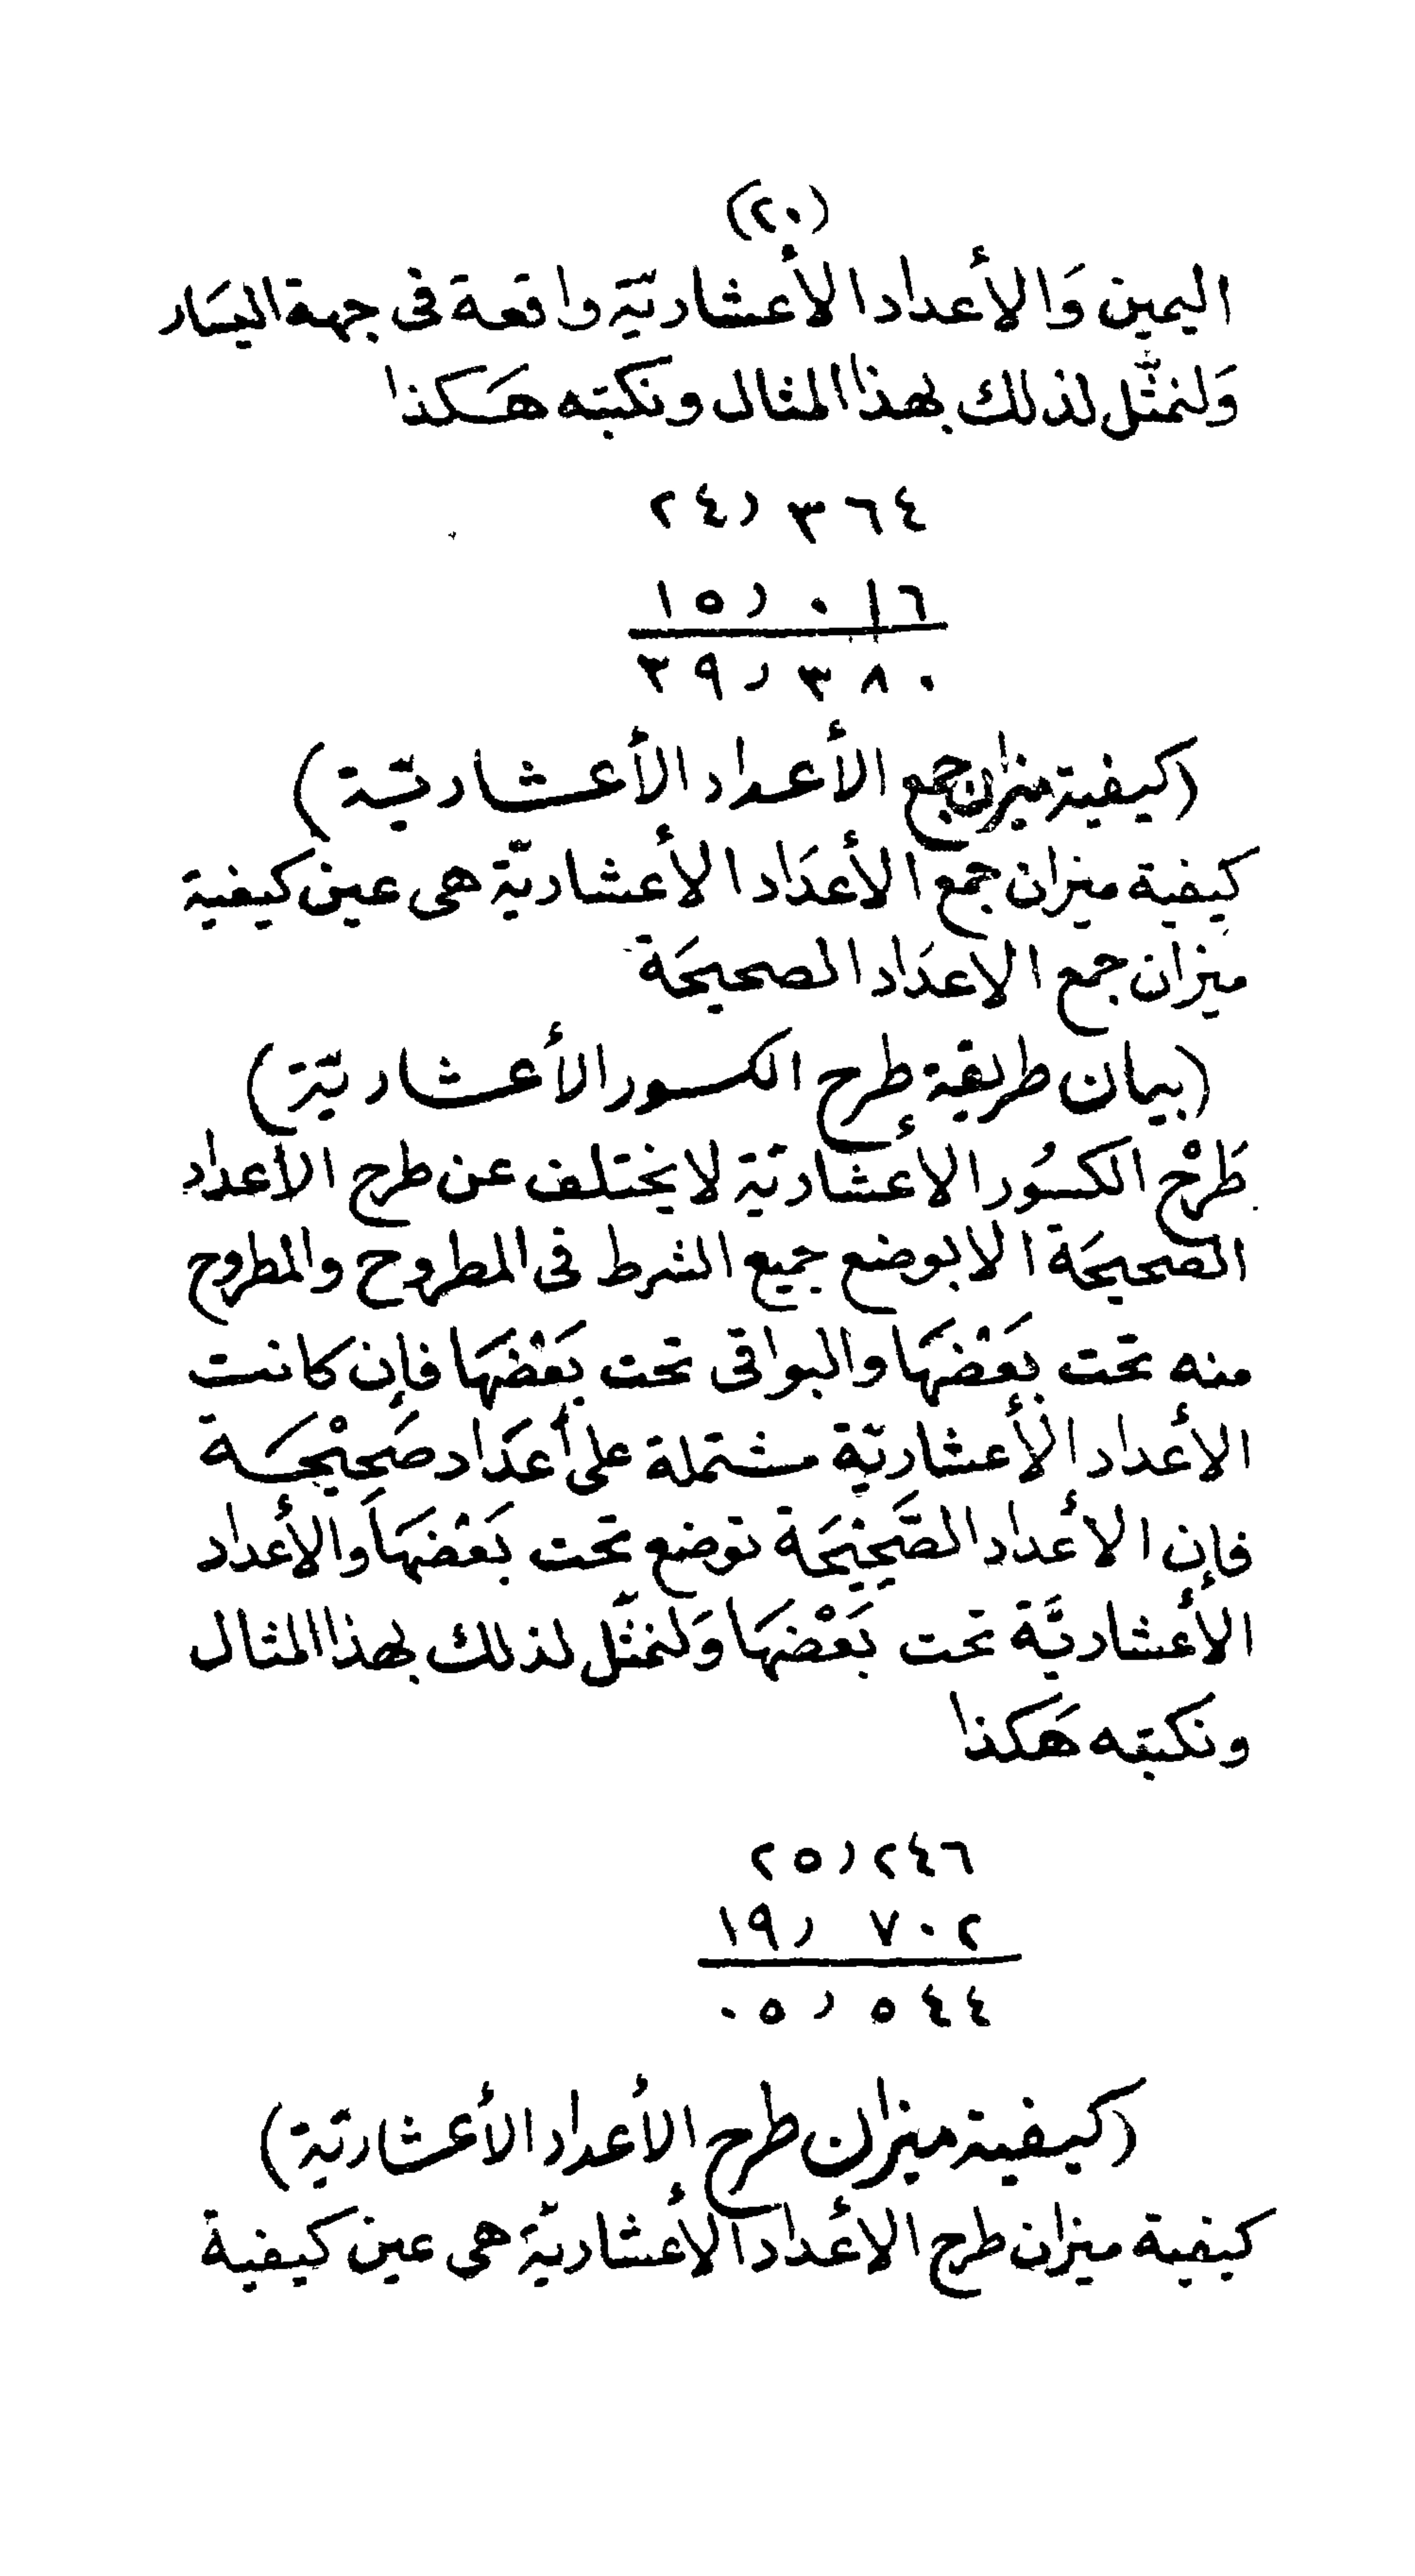 (٢٠)
اليمين وَالأعداد الأعشاريّة واقعة فى جهة اليسَار
وَلنمثّل لذلك بهذا المثال ونكتبه هَكذا
٢٤٫٣٦٤
١٥٫٠١٦
٣٩٫٣٨٠
(كيفية ميزان جمع الأعداد الأعشاريّة)
كيفية ميزان جمع الأعدَاد الأعشاريّة هى عين كيفية
ميزان جمع الاعدَاد الصحيحَة
(بيان طريقة طرح الكسور الأعشاريّة)
طَرْح الكسُور الإعشاريّة لا يختلف عن طرح الأعداد
الصحيحَة الا بوضع جميع الشرط فى المطروح والمطروح
منه تحت بَعْضهَا والبواقى تحت بَعْضهَا فإن كانت
الأعداد الأعشاريّة مشتملة على أعدَاد صَحِيْحَة
فإن الأعداد الصَّحِيْحَة توضع تحت بَعْضهَا وَالأعداد
الأعشاريَّة تحت بَعْضهَا وَلنمثّل لذلك بهذا المثال
ونكتبه هَكذا
٢٥٫٢٤٦
١٩٫٧٠٢
٠٥٫٥٤٤
(كيفية ميزان طرح الأعداد الأعشاريّة)
كيفية ميزان طرح الأعداد الأعشاريّة هى عين كيفية